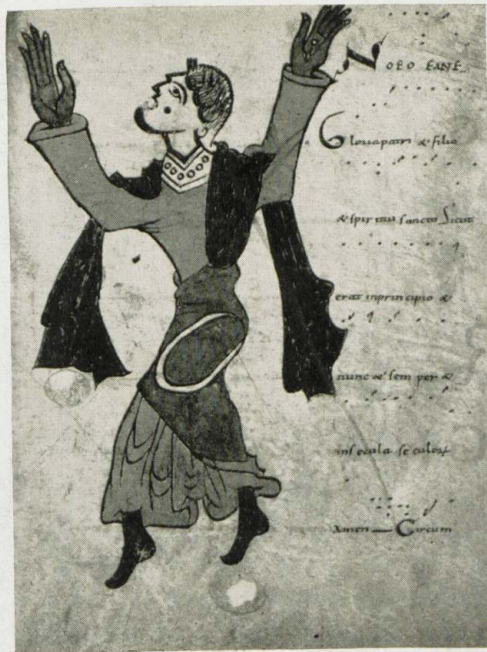 NOEO EANE
Gloria patri & filio
& spiritui sancto Sicut
erat in principio &
nunc & sem per &
in secula seculorum
Amen Circum